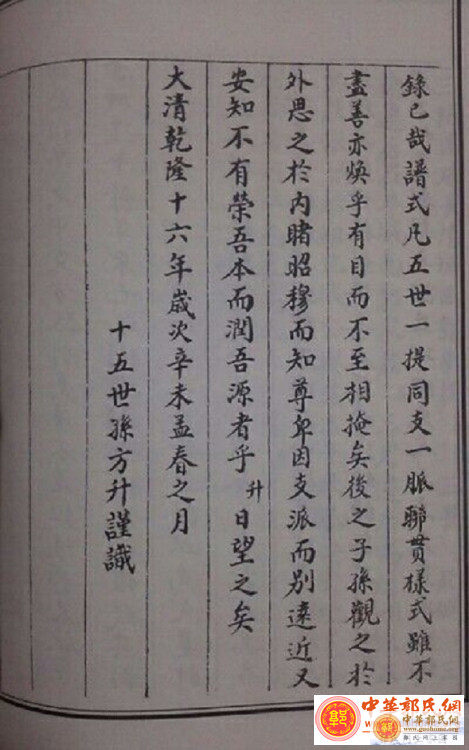 錄已哉譜式凡五世一提同支一脈聯貫樣式雖不
盡善亦煥乎有目而不至相掩矣後之子孫觀之於
外思之於內睹昭穆而知尊卑因支派而別遠近又
安知不有榮吾本而潤吾源者乎升日望之矣
大清乾隆十六年歲次辛未孟春之月
十五世孫方升謹識
中華郭氏网
中華郭氏网
www.guohome.org
郭氏网上家园